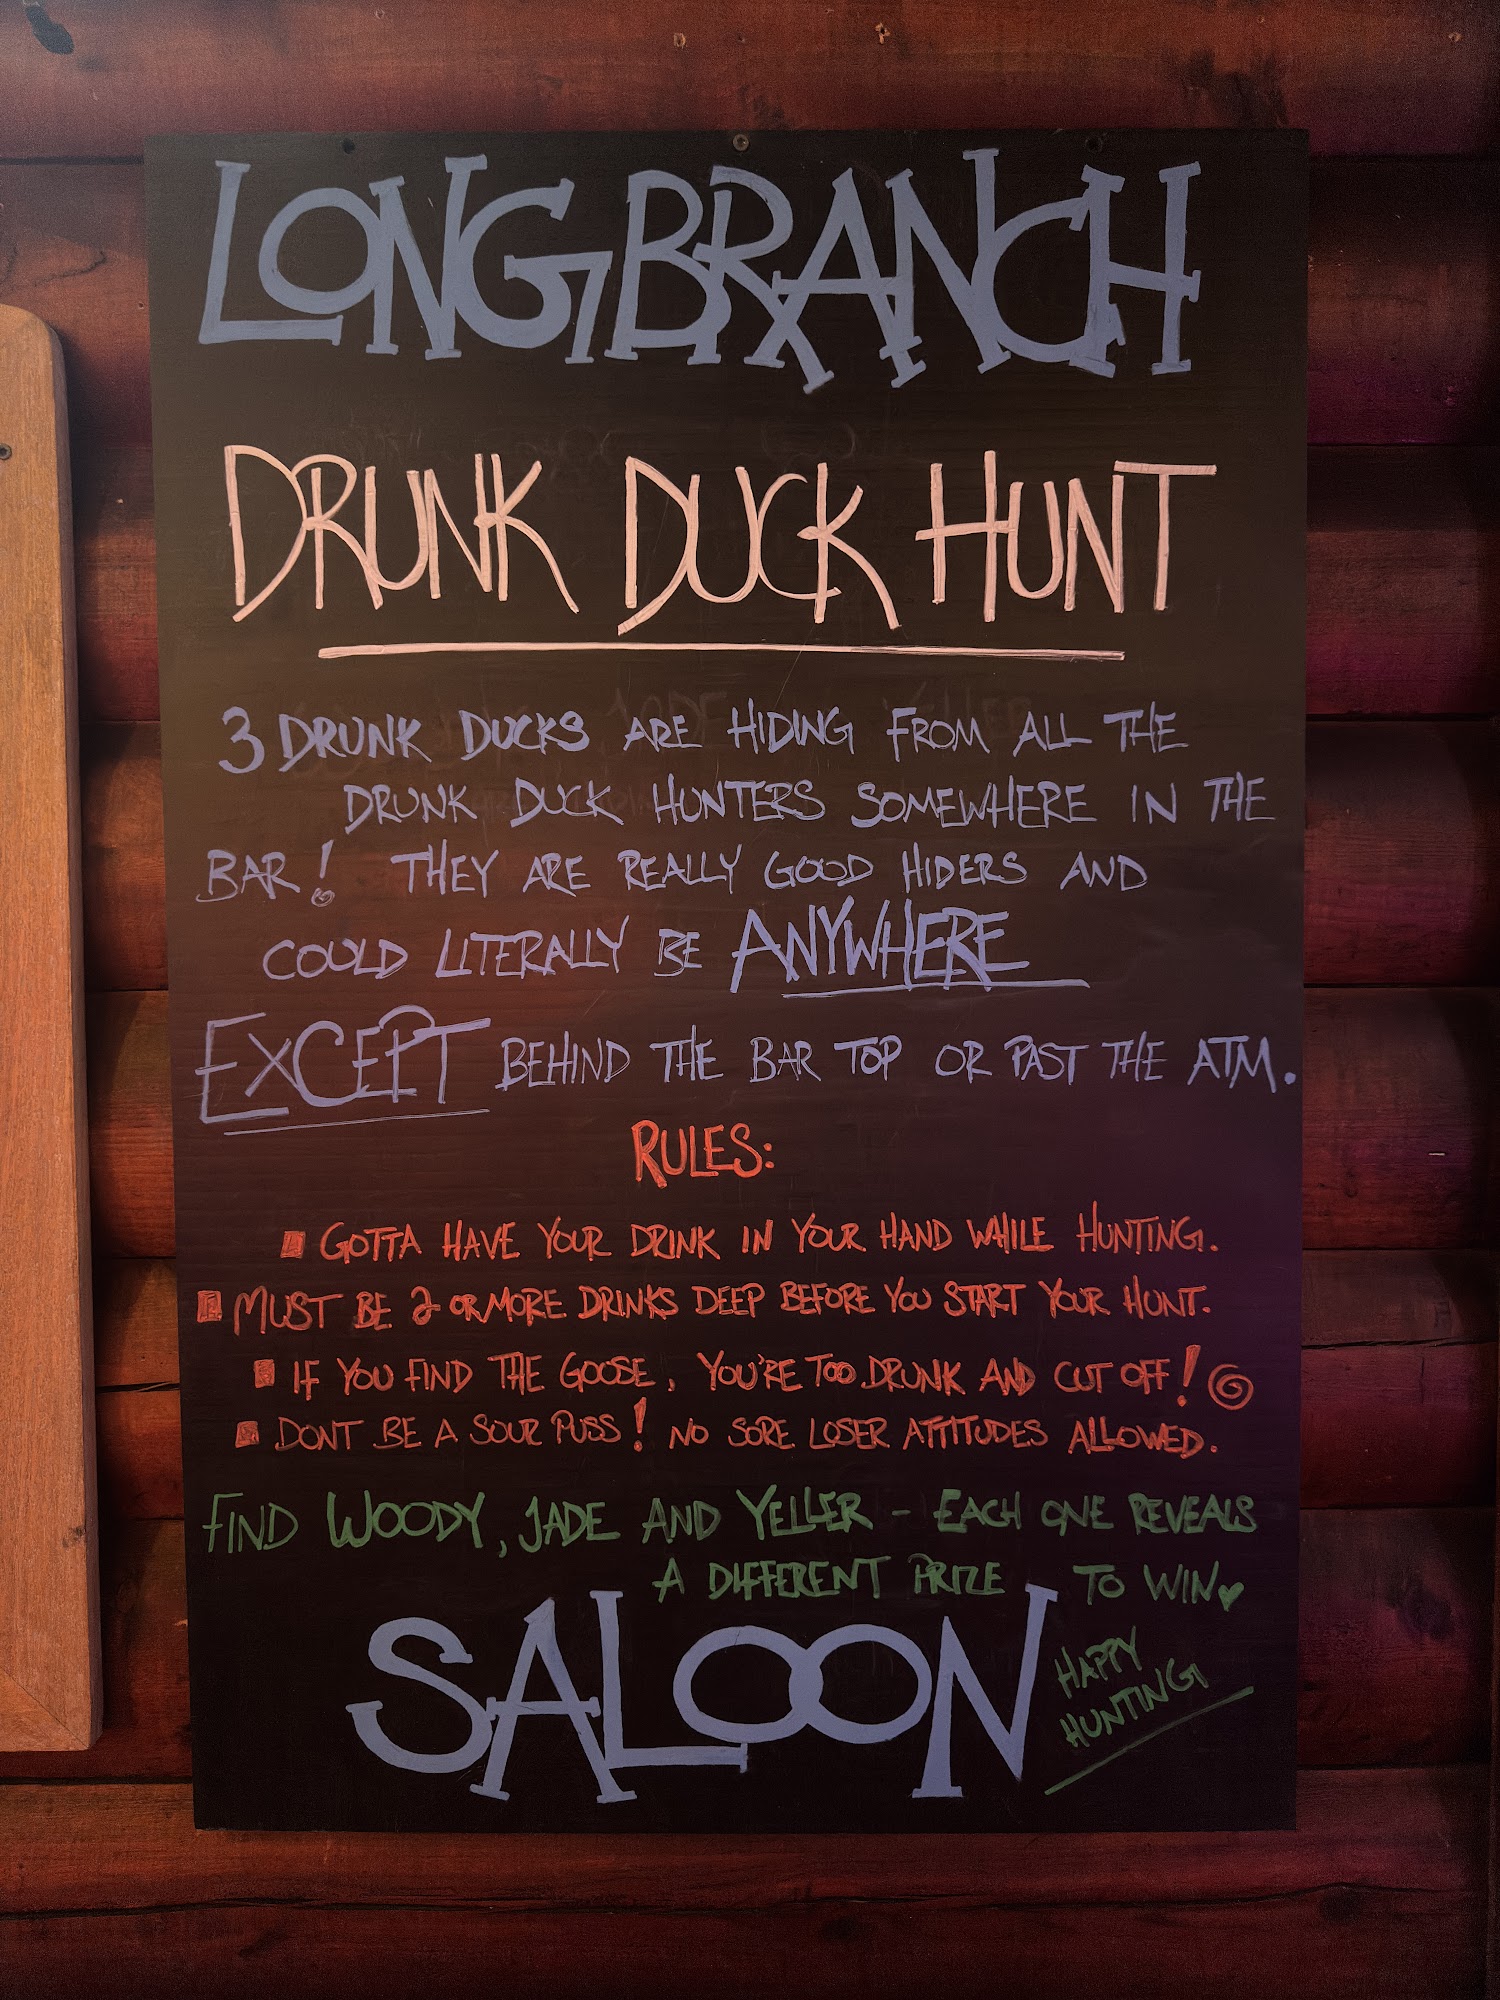 LONGBRANCH
DRUNK DUCK HUNT
3 DRUNK DUCKS ARE HIDING FROM ALL THE
DRUNK DUCK HUNTERS SOMEWHERE IN THE
BAR! THEY ARE REALLY GOOD HIDERS AND
COULD LITERALLY BE ANYWHERE
EXCEPT BEHIND THE BAR TOP OR PAST THE ATM.
RULES:
GOTTA HAVE YOUR DRINK IN YOUR HAND WHILE HUNTING.
MUST BE 2 OR MORE DRINKS DEEP BEFORE YOU START YOUR HUNT.
IF YOU FIND THE GOOSE, YOU'RE TOO DRUNK AND CUT OFF!
DONT BE A SOUR PUSS! NO SORE LOSER ATTITUDES ALLOWED.
FIND WOODY, JADE AND YELLER - EACH ONE REVEALS
A DIFFERENT PRIZE TO WIN♥
SALOON
HAPPY
HUNTING